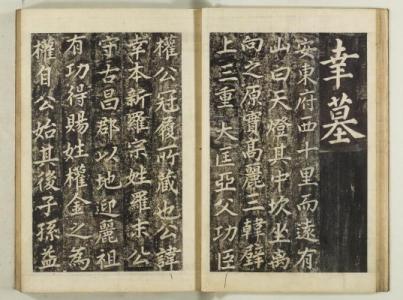 幸墓
安東府西十里而遠有
山曰天燈其中坎坐禹
向之原實高麗三韓壁
上三重大匡亞父功臣
權公冠履所藏也公諱
幸本新羅宗姓羅末公
守古昌郡以地迎麗祖
有功得賜姓權金之為
權自公始其後子孫益